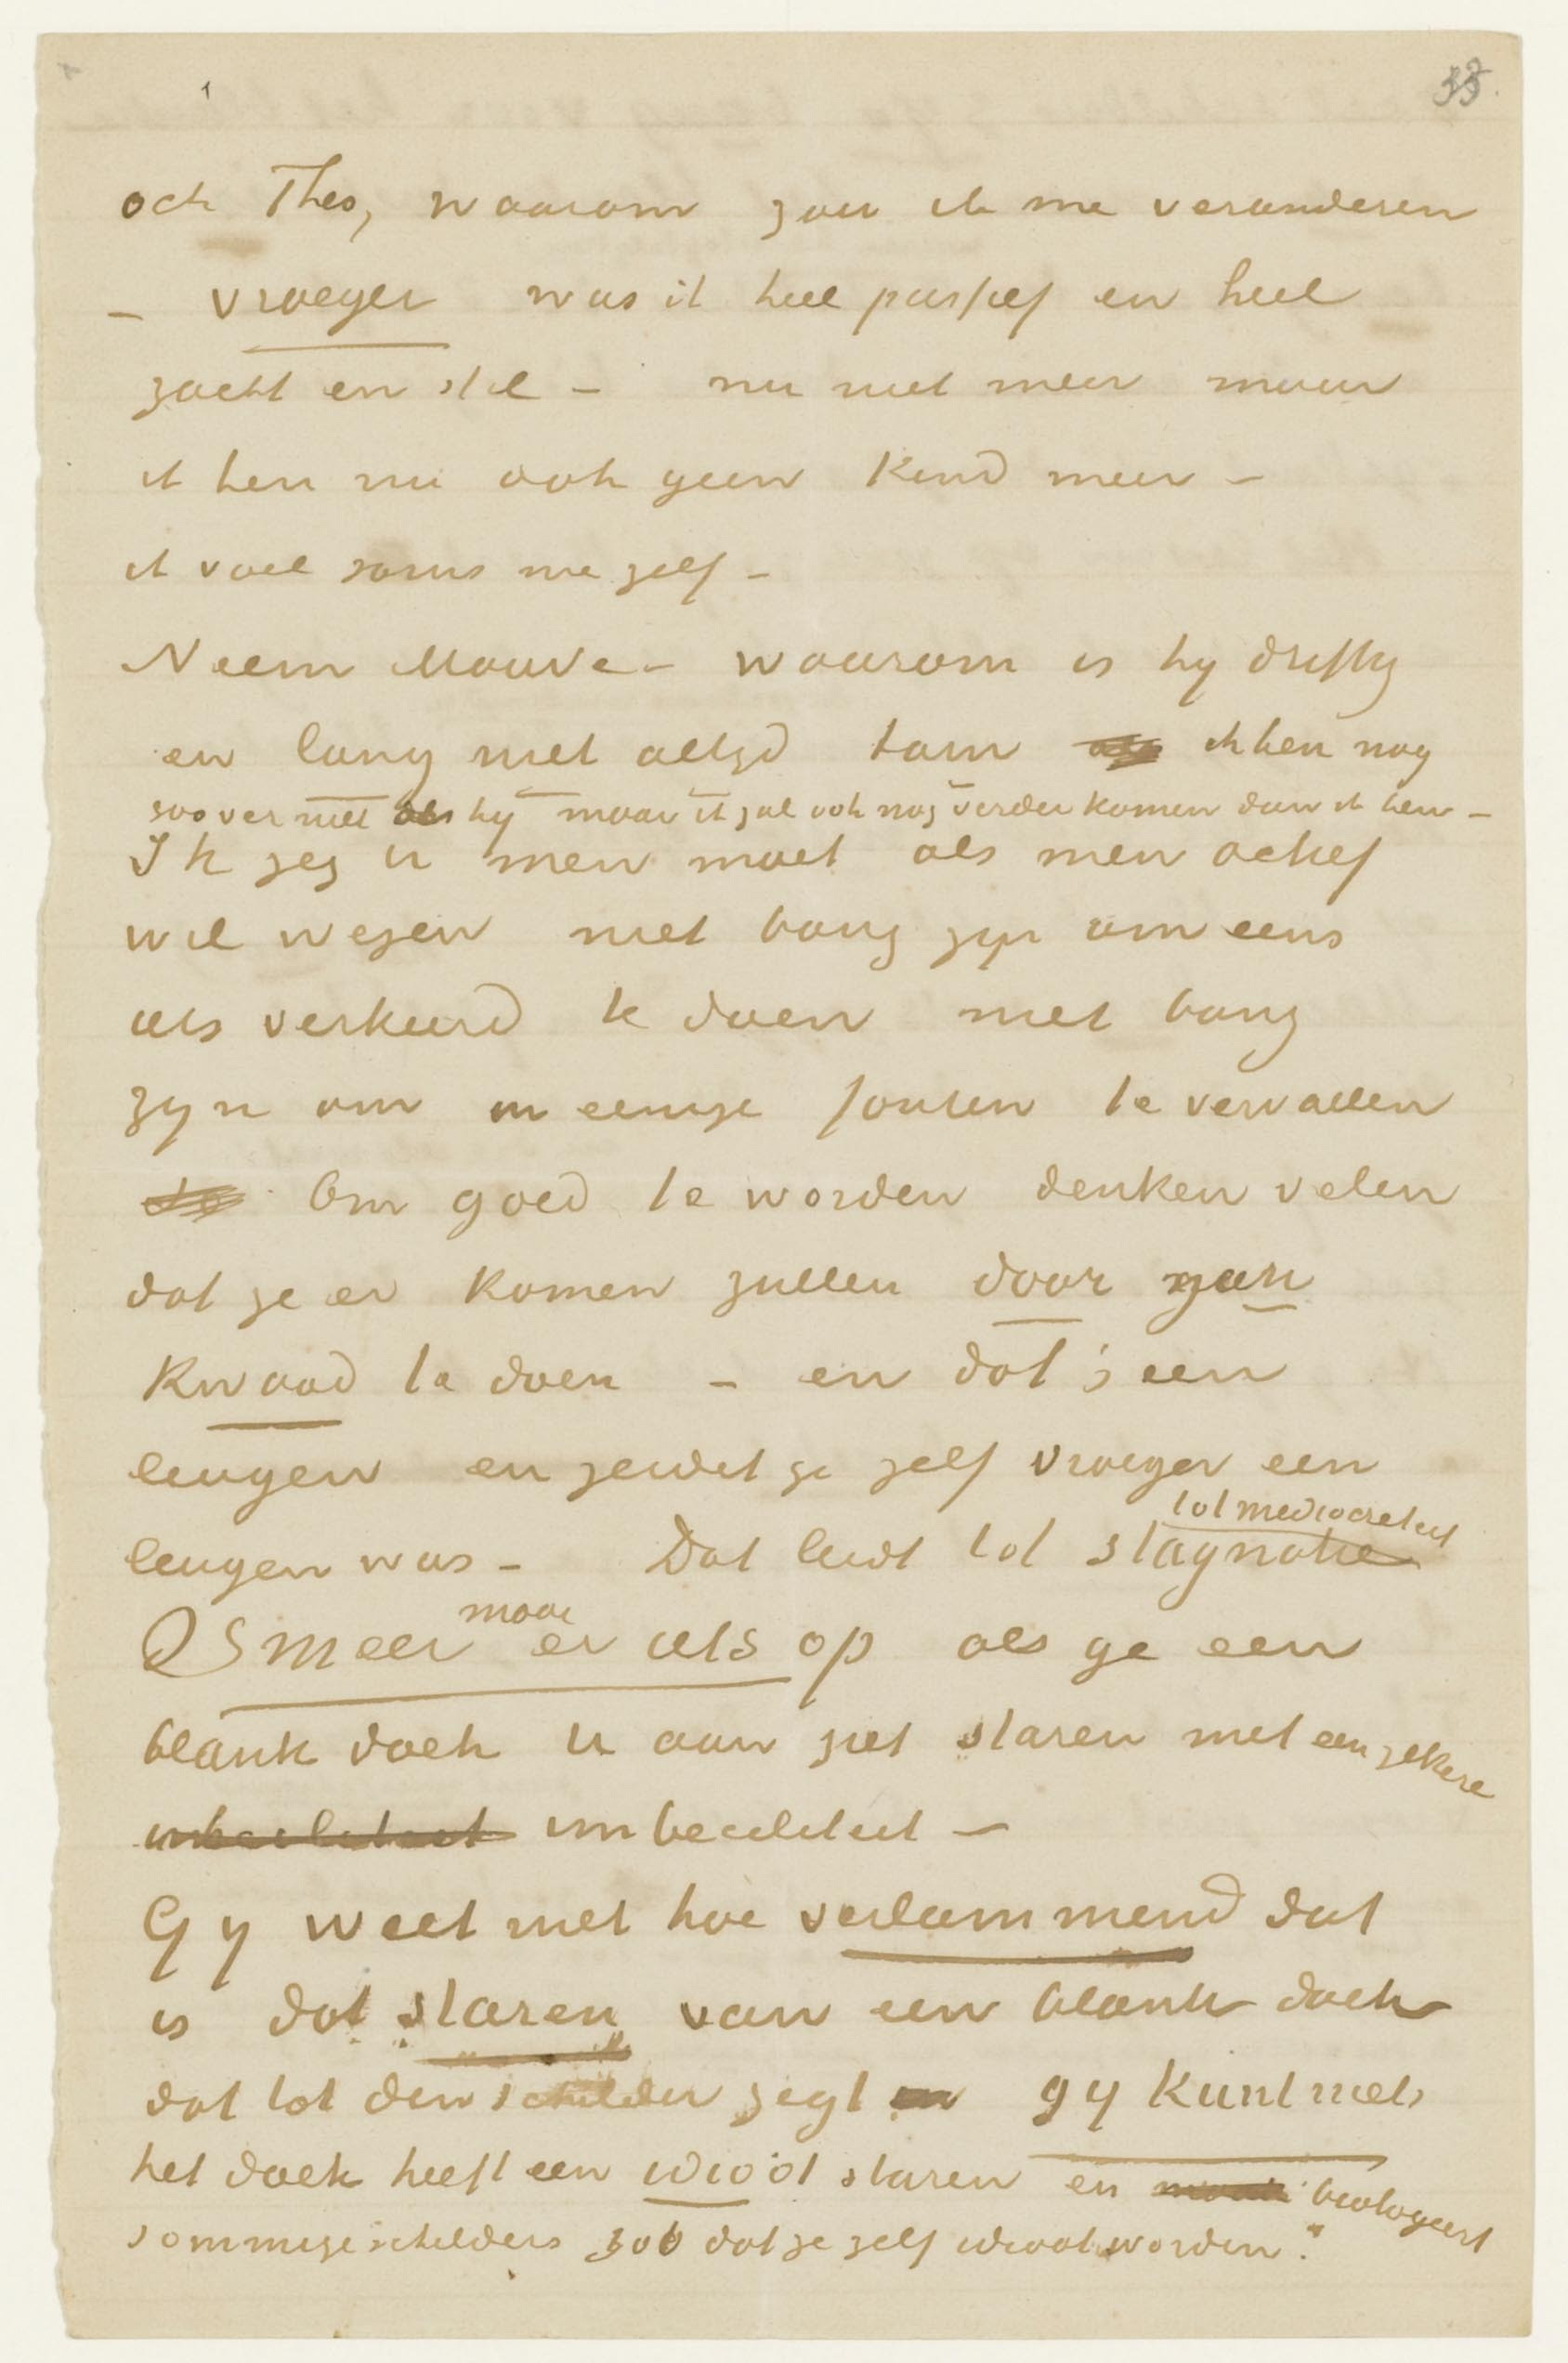 33.
och Theo, waarom zou ik me veranderen
– vroeger was ik heel passief en heel
zacht en stil – nu niet meer maar
ik ben nu ook geen kind meer –
ik voel soms me zelf –
Neem Mauve – waarom is hy driftig
en lang niet altyd tam ik ben nog
zoo ver niet als hy maar ik zal ook nog verder komen dan ik ben –
Ik zeg u men moet als men actief
wil wezen niet bang zyn om eens
iets verkeerd te doen niet bang
zyn om in eenige fouten te vervallen
Om goed te worden denken velen
dat ze er komen zullen door geen
kwaad te doen – en dat 's een
leugen en ge zeidet ge zelf vroeger een
tot mediocriteit
leugen was – Dat leidt tot stagnatie
maar
Smeer er iets op als ge een
blank doek u aan ziet staren met een zekere
imbeciliteit imbeciliteit –
Gy weet niet hoe verlammend dat
is dat staren van een blank doek
dat tot den schilder zegt gy kunt niets
het doek heeft een idioot staren en biologeert
sommige schilders zoo dat ze zelf idioot worden.